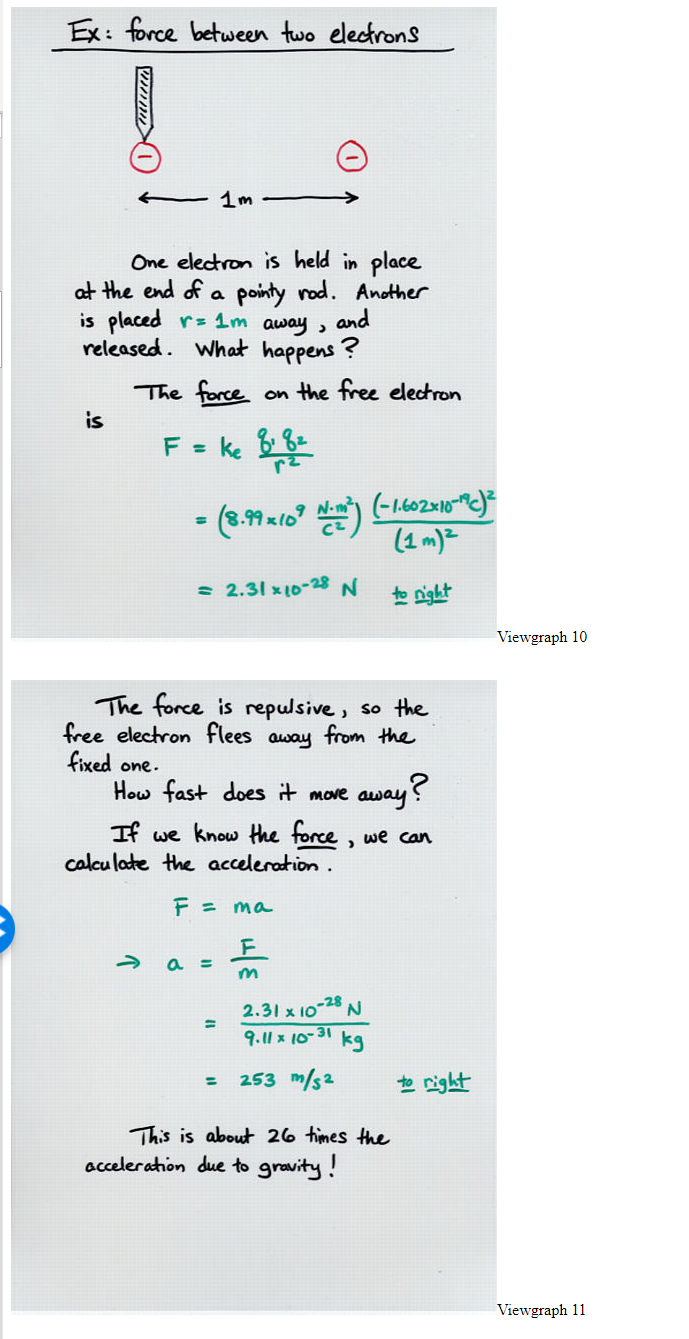 Ex: force between two electrons
−
−
1m
One electron is held in place
at the end of a pointy rod. Another
is placed r = 1m away, and
released. What happens?
The force on the free electron
is
F = ke q1 q2 / r²
= (8.99 x 10⁹ N·m²/C²) (-1.602x10⁻¹⁹C)² / (1 m)²
= 2.31 x 10⁻²⁸ N to right
Viewgraph 10
The force is repulsive, so the
free electron flees away from the
fixed one.
How fast does it move away?
If we know the force, we can
calculate the acceleration.
F = ma
→ a = F / m
= 2.31 x 10⁻²⁸ N / 9.11 x 10⁻³¹ kg
= 253 m/s² to right
This is about 26 times the
acceleration due to gravity!
Viewgraph 11